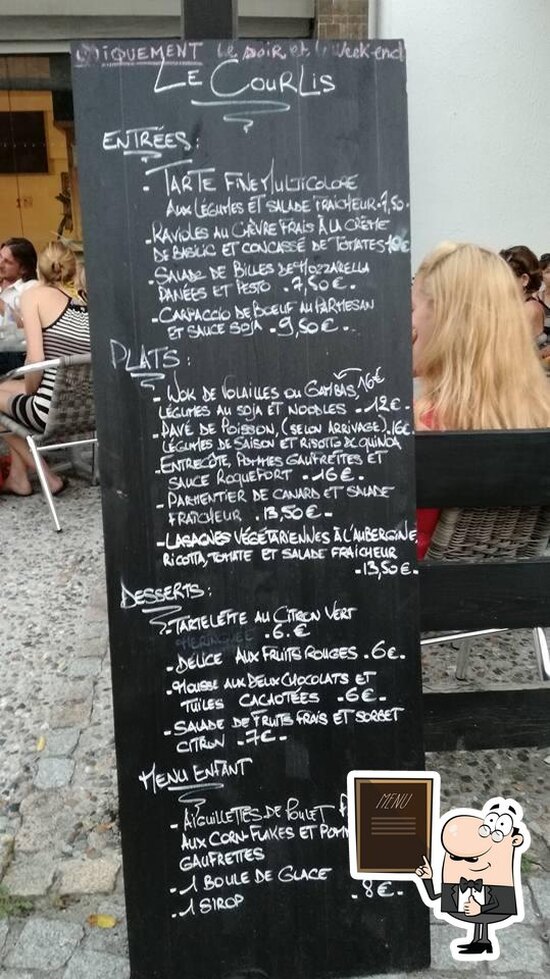 UNIQUEMENT Le soir et le week-end
LE COURLIS
ENTRÉES :
- TARTE FINE MULTICOLORE
AUX LÉGUMES ET SALADE FRAICHEUR - 7,50 -
- RAVIOLES AU CHÈVRE FRAIS À LA CRÈME
DE BASILIC ET CONCASSÉ DE TOMATES - 10€
- SALADE DE BILLES DE MOZZARELLA
PANÉES ET PESTO . 7,50€ -
- CARPACCIO DE BOEUF AU PARMESAN
ET SAUCE SOJA . 9,50€ -
PLATS :
- WOK DE VOLAILLES OU GAMBAS, 16€
LÉGUMES AU SOJA ET NOODLES . 12€ -
- PAVÉ DE POISSON, (SELON ARRIVAGE) . 16€
LÉGUMES DE SAISON ET RISOTTO DE QUINOA
- ENTRECÔTE, POMMES GAUFRETTES ET
SAUCE ROQUEFORT . 16€ -
- PARMENTIER DE CANARD ET SALADE
FRAÎCHEUR . 13,50€ -
- LASAGNES VÉGÉTARIENNES À L'AUBERGINE,
RICOTTA, TOMATE ET SALADE FRAICHEUR
- 13,50€ -
DESSERTS :
- TARTELETTE AU CITRON VERT
MERINGUÉE . 6.€
- DÉLICE AUX FRUITS ROUGES . 6€ -
- MOUSSE AUX DEUX CHOCOLATS ET
TUILES CACAOTÉES . 6€ -
- SALADE DE FRUITS FRAIS ET SORBET
CITRON . 7€ -
MENU ENFANT
- AIGUILLETTES DE POULET
AUX CORN-FLAKES ET
GAUFRETTES
- 1 BOULE DE GLACE
- 1 SIROP
- 8€ -
MENU